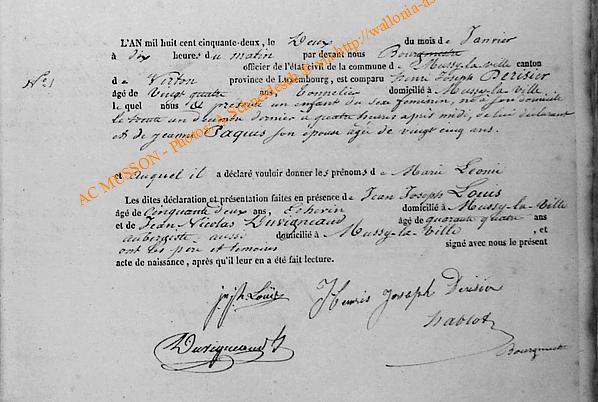 L'AN mil huit cent cinquante-deux, le Deux du mois de Janvier
à Dix heures du matin par devant nous Bourgmestre
officier de l'état civil de la commune de Mussy-la-ville canton
Nº 1
de Virton province de Luxembourg, est comparu henri Joseph Perisier
âgé de Vingt quatre ans, Tonnelier domicilié à Mussy-la-Ville
lequel nous a présenté un enfant du sexe feminin, né à son domicile
le trente un decembre dernier à quatre heures après midi, de lui declarant
et de jeanne Paquis son épouse agée de vingt cinq ans.
et auquel il a déclaré vouloir donner les prénoms de Marie Leonie
Les dites déclaration et présentation faites en présence de Jean Joseph Louis
âgé de Cinquante deux ans, Echevin domicilié à Mussy-la-Ville
et de Jean Nicolas Duvigneaud âgé de quarante quatre ans
aubergiste aussi domicilié à Mussy-la-Ville, et
ont les pere et temoins signé avec nous le présent
acte de naissance, après qu'il leur en a été fait lecture.
Louis
Henris Joseph Perisier
Duvigneaud
Bourgmest
AC MUSSON - Photos: A. Schaedgen http://wallonia-as